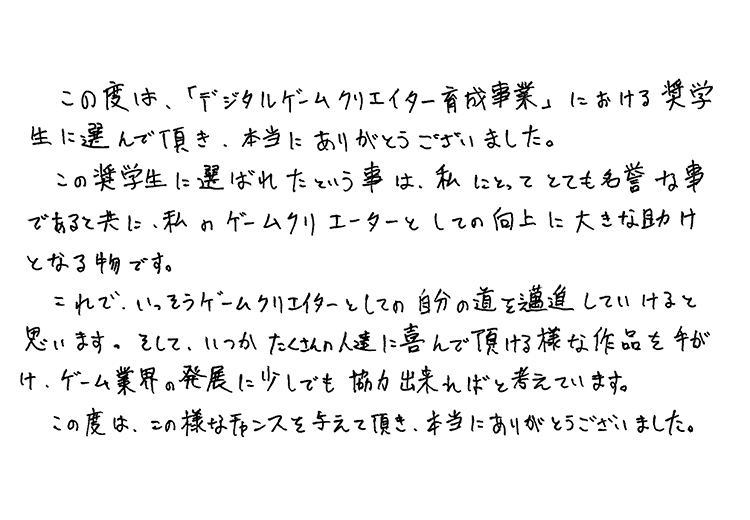 この度は、「デジタルゲームクリエイター育成事業」における奨学
生に選んで頂き、本当にありがとうございました。
この奨学生に選ばれたという事は、私にとってとても名誉な事
であると共に、私のゲームクリエーターとしての向上に大きな助け
となる物です。
これで、いっそうゲームクリエイターとしての自分の道を邁進していけると
思います。そして、いつかたくさんの人達に喜んで頂ける様な作品を手が
け、ゲーム業界の発展に少しでも協力出来ればと考えています。
この度は、この様なチャンスを与えて頂き、本当にありがとうございました。